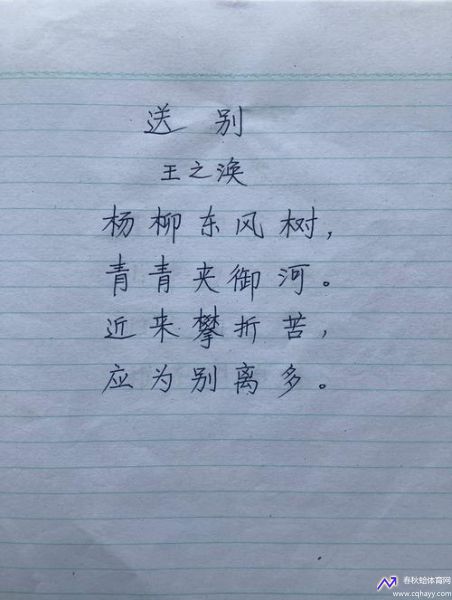 送别
王之涣
杨柳东风树，
青青夹御河。
近来攀折苦，
应为别离多。
春秋蛤体育网
www.cqhayy.com